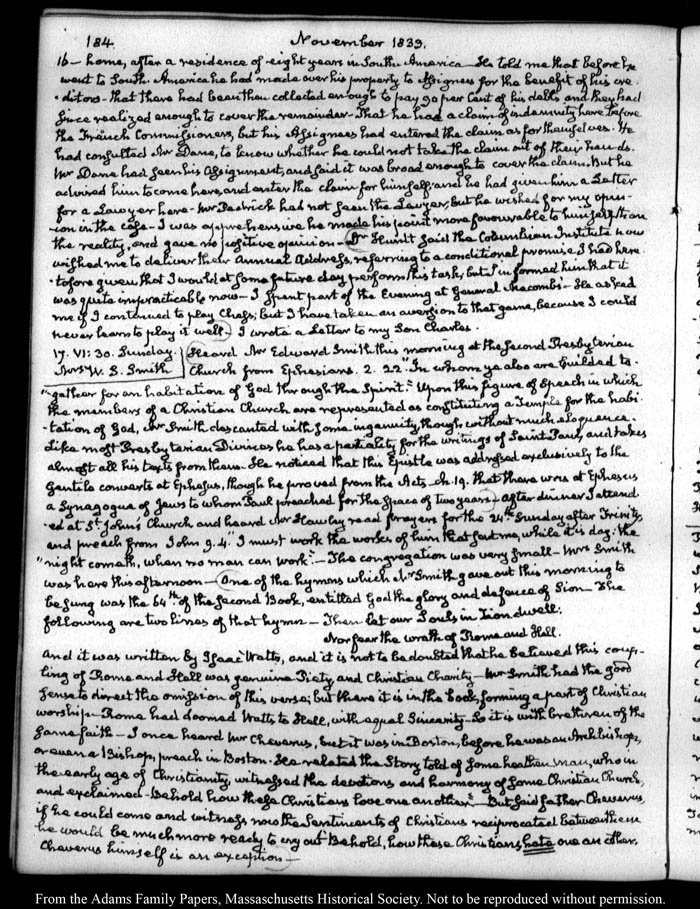 184.
November 1833.
16 – home, after a residence of eight years in South America – He told me that before he
went to South America he had made over his property to Assignees for the benefit of his cre-
ditors – that there had been then collected enough to pay 90 per Cent of his debts and they had
since realized enough to cover the remainder – That he had a claim of indemnity here before
the French Commissioners, but his Assignees had entered the claim as for themselves. He
had consulted Mr Dane, to know whether he could not take the claim out of their hands.
Mr Dane had seen his Assignment, and said it was broad enough to cover the claim. But he
advised him to come here, and enter the claim for himself, and he had given him a Letter
for a Lawyer here – Mr has not seen the Lawyer, but he wished for my opin-
ion in the case – I was apprehensive he made his point more favourable to himself than
the reality, and gave no positive opinion – Dr Hunt said the Columbian Institute now
wished me to deliver their Annual Address, referring to a conditional promise I had here-
tofore given that I would at some future day perform this task, but I informed him that it
was quite impracticable now – I spent part of the Evening at General Macomb's – He asked
me if I continued to play Chess; but I have taken an aversion to that game, because I could
never learn to play it well – I wrote a Letter to my Son Charles.
17. VI:30. Sunday. Heard Mr Edward Smith this morning at the Second Presbyterian
Mrs W. S. Smith Church from Ephesians. 2. 22. "In whom ye also are builded to-
"gether for an habitation of God through the Spirit." Upon this figure of Speech in which
the members of a Christian Church are represented as constituting a Temple for the habi-
tation of God, Mr Smith descanted with some ingenuity, though without much eloquence.
Like most Presbyterian Divines he has a partiality for the writings of Saint Paul, and takes
almost all his texts from them – He noticed that this Epistle was addressed exclusively to the
Gentile converts at Ephesus, though he proved from the Acts, ch. 19. that there was at Ephesus
a Synagogue of Jews to whom Paul preached for the space of two years – after dinner I attend-
ed at St. John's Church and heard Mr Hawley read prayers for the 24th Sunday after Trinity,
and preach from John 9. 4. "I must work the works of him that sent me, while it is day: the
"night cometh, when no man can work." – The congregation was very small – Mrs Smith
was here this afternoon – One of the hymns which Mr Smith gave out this morning to
be sung was the 64th of the Second Book, entitled God the glory and defence of Sion – The
following are two lines of that hymn – Then let our Souls in Zion dwell;
Nor fear the wrath of Rome and Hell.
And it was written by Isaac Watts, and it is not to be doubted that he believed this coup-
ling of Rome and Hell was genuine Piety and Christian Charity – Mr Smith had the good
sense to direct the omission of this verse; but there it is in the book, forming a part of Christian
worship – Rome had doomed Watts to Hell, with equal Sincerity – So it is with brethren of the
same faith – I once heard Mr Cheverus, but it was in Boston, before he was an Archbishop,
or even a Bishop, preach in Boston. He related the Story told of some heathen man, who in
the early age of Christianity, witnessed the devotions and harmony of some Christian Church,
and exclaimed – Behold how these Christians love one another" – But said father Cheverus,
if he could come and witness now the Sentiments of Christians reciprocated between them
he would be much more ready to cry out Behold, how these Christians hate one another.
Cheverus himself is an exception –
From the Adams Family Papers, Massachusetts Historical Society. Not to be reproduced without permission.